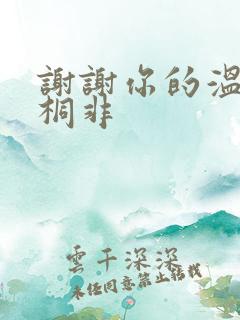 謝謝你的溫
桐非
雲千深深
未经同意禁止转载